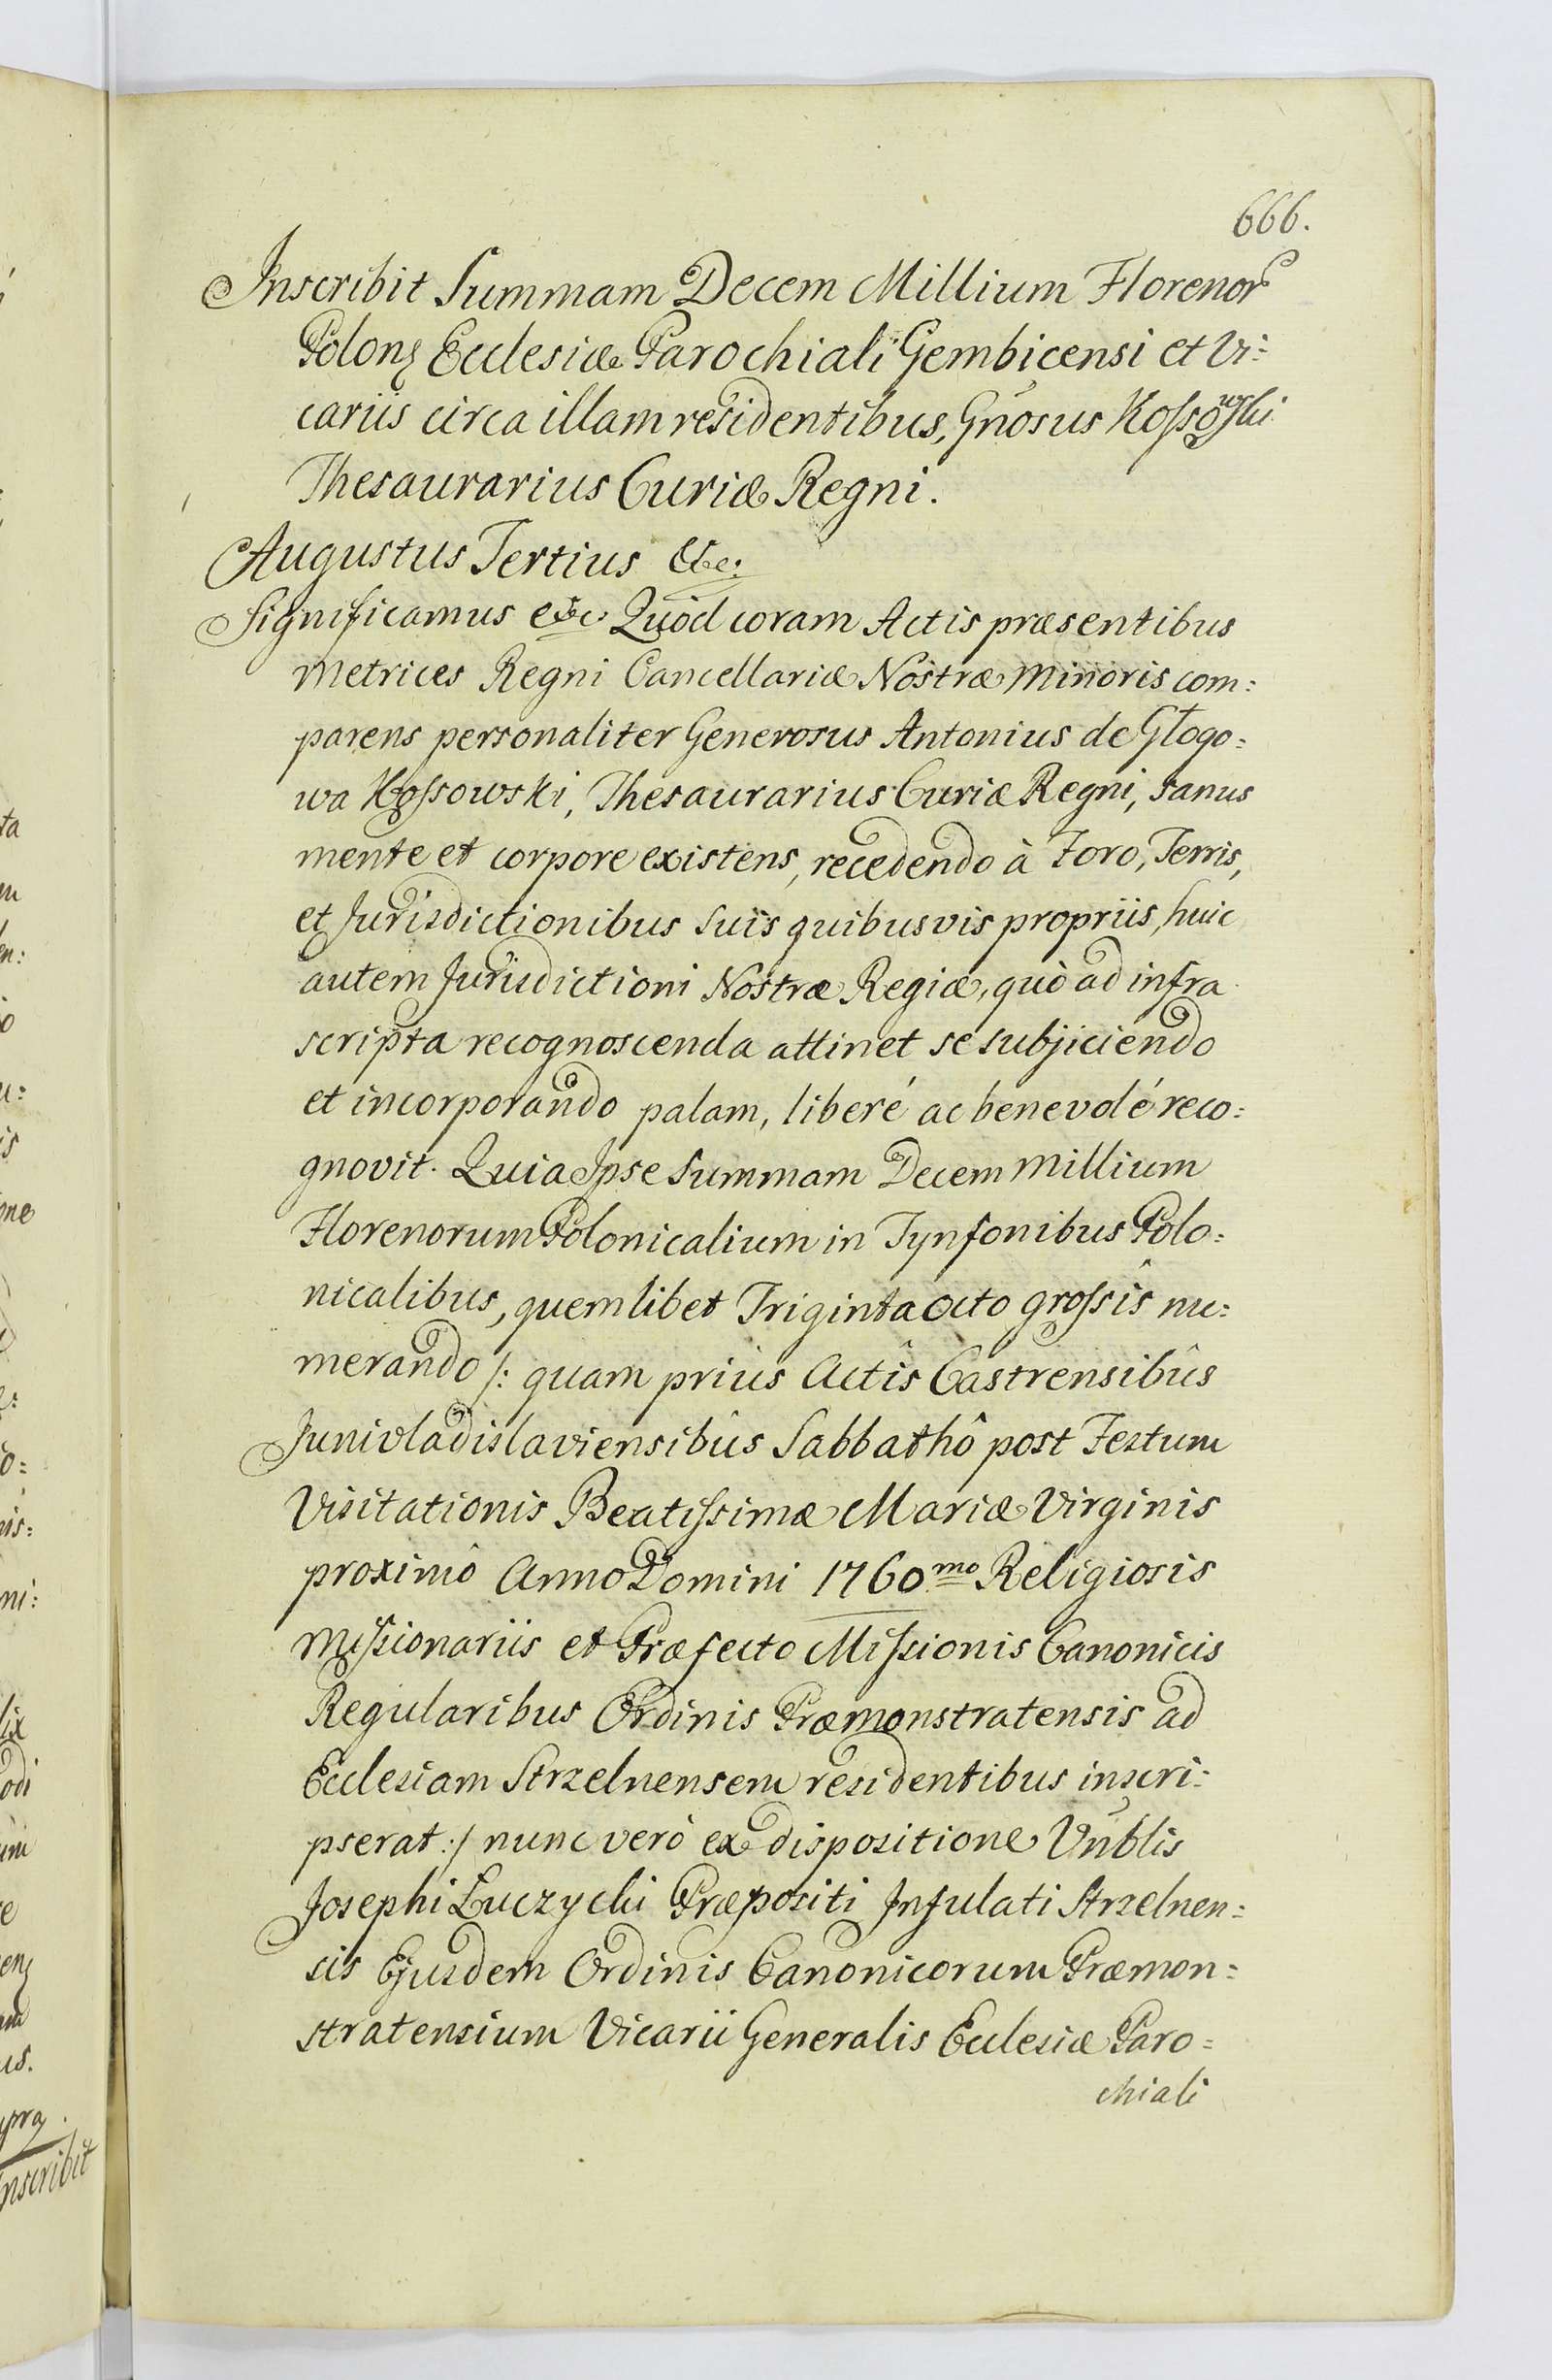 666.
Inscribit Summam Decem Millium Florenor
Polon Ecclesiæ Parochiali Gembicensi et Vi=
cariis circa illam residentibus, Gnosus Kossowski
Thesaurarius Curiæ Regni.
Augustus Tertius &c:
Significamus &c Quòd coram Actis præsentibus
Metrices Regni Cancellariæ Nostræ Minoris com=
parens personaliter Generosus Antonius de Głogo=
wa Kossowski, Thesaurarius Curiæ Regni, sanus
mente et corpore existens, recedendo à Foro, Terris,
et Jurisdictionibus suis quibusvis propriis, huic
autem Jurisdictioni Nostræ Regiæ, quò ad infra
scripta recognoscenda attinet se subjiciendo
et incorporando palam, liberé ac benevolé reco=
gnovit. Quia Ipse Summam Decem Millium
Florenorum Polonicalium in Tynfonibus Polo=
nicalibus, quemlibet Triginta octo grossîs nu=
merando /: quam priùs Actîs Castrensibûs
Junivladislaviensibûs Sabbathô post Festum
Visitationis Beatissimæ Mariæ Virginis
proximô Anno Domini 1760mo Religiosis
Missionariis et Præfecto Missionis Canonicis
Regularibus Ordinis Præmonstratensis ad
Ecclesiam Strzelnensem residentibus inscri=
pserat :/ nunc verò ex dispositione Vnblis
Josephi Łuczycki Præpositi Infulati Strzelnen=
sis Ejusdem Ordinis Canonicorum Præmon=
stratensium Vicarii Generalis Ecclesiæ Paro=
chiali
Inscribit